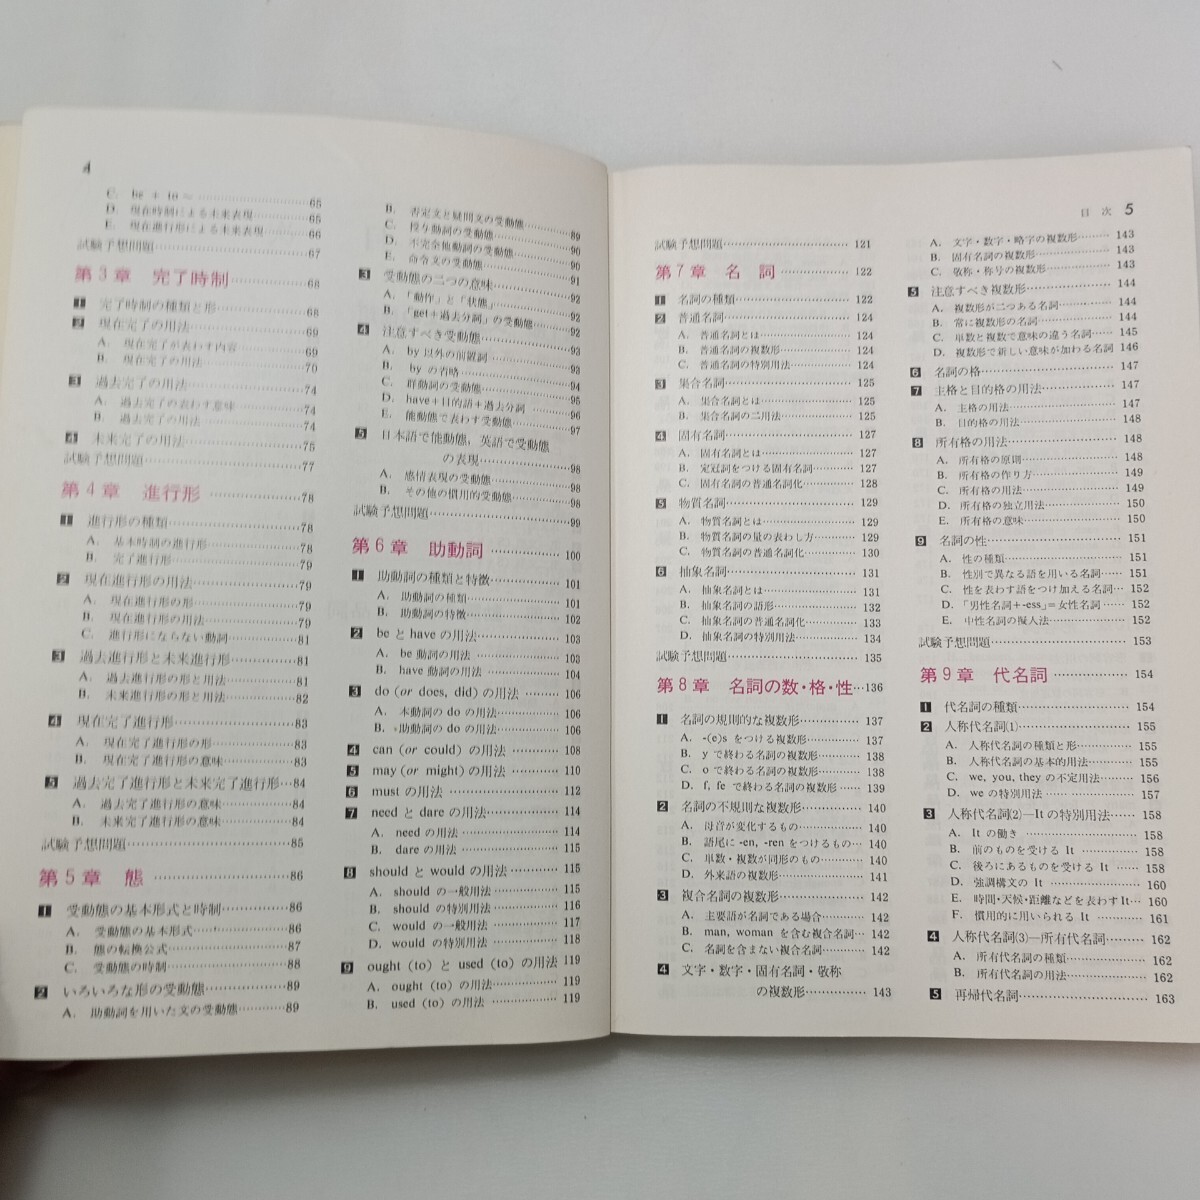 4
C. be + to ～ 65
D. 現在時制による未来表現 65
E. 現在進行形による未来表現 66
試験予想問題 67
第3章 完了時制 68
1 完了時制の種類と形 68
2 現在完了の用法 69
A. 現在完了が表わす内容 69
B. 現在完了の用法 70
3 過去完了の用法 74
A. 過去完了の表わす意味 74
B. 過去完了の用法 74
4 未来完了の用法 75
試験予想問題 77
第4章 進行形 78
1 進行形の種類 78
A. 基本時制の進行形 78
B. 完了進行形 79
2 現在進行形の用法 79
A. 現在進行形の形 79
B. 現在進行形の用法 79
C. 進行形にならない動詞 81
3 過去進行形と未来進行形 81
A. 過去進行形の形と用法 81
B. 未来進行形の形と用法 82
4 現在完了進行形 83
A. 現在完了進行形の形 83
B. 現在完了進行形の意味 83
5 過去完了進行形と未来完了進行形 84
A. 過去完了進行形の意味 84
B. 未来完了進行形の意味 84
試験予想問題 85
第5章 態 86
1 受動態の基本形式と時制 86
A. 受動態の基本形式 86
B. 態の転換公式 87
C. 受動態の時制 88
2 いろいろな形の受動態 89
A. 助動詞を用いた文の受動態 89
B. 否定文と疑問文の受動態 89
C. 授与動詞の受動態 90
D. 不完全他動詞の受動態 90
E. 命令文の受動態 91
3 受動態の二つの意味 92
A. 「動作」と「状態」 92
B. 「get+過去分詞」の受動態 92
4 注意すべき受動態 93
A. by 以外の前置詞 93
B. by の省略 94
C. 群動詞の受動態 95
D. have+目的語+過去分詞 96
E. 能動態で表わす受動態 97
5 日本語で能動態，英語で受動態
の表現 98
A. 感情表現の受動態 98
B. その他の慣用的受動態 98
試験予想問題 99
第6章 助動詞 100
1 助動詞の種類と特徴 101
A. 助動詞の種類 101
B. 助動詞の特徴 102
2 be と have の用法 103
A. be 動詞の用法 103
B. have 動詞の用法 104
3 do (or does, did) の用法 106
A. 本動詞の do の用法 106
B. 助動詞の do の用法 106
4 can (or could) の用法 108
5 may (or might) の用法 110
6 must の用法 112
7 need と dare の用法 114
A. need の用法 114
B. dare の用法 115
8 should と would の用法 115
A. should の一般用法 115
B. should の特別用法 116
C. would の一般用法 117
D. would の特別用法 118
9 ought (to) と used (to) の用法 119
A. ought (to) の用法 119
B. used (to) の用法 119
目次 5
試験予想問題 121
第7章 名詞 122
1 名詞の種類 122
2 普通名詞 124
A. 普通名詞とは 124
B. 普通名詞の複数形 124
C. 普通名詞の特別用法 124
3 集合名詞 125
A. 集合名詞とは 125
B. 集合名詞の二用法 125
4 固有名詞 127
A. 固有名詞とは 127
B. 定冠詞をつける固有名詞 127
C. 固有名詞の普通名詞化 128
5 物質名詞 129
A. 物質名詞とは 129
B. 物質名詞の量の表わし方 129
C. 物質名詞の普通名詞化 130
6 抽象名詞 131
A. 抽象名詞とは 131
B. 抽象名詞の語形 132
C. 抽象名詞の普通名詞化 133
D. 抽象名詞の特別用法 134
試験予想問題 135
第8章 名詞の数・格・性 136
1 名詞の規則的な複数形 137
A. -(e)s をつける複数形 137
B. y で終わる名詞の複数形 138
C. o で終わる名詞の複数形 138
D. f, fe で終わる名詞の複数形 139
2 名詞の不規則な複数形 140
A. 母音が変化するもの 140
B. 語尾に -en, -ren をつけるもの 140
C. 単数・複数が同形のもの 140
D. 外来語の複数形 141
3 複合名詞の複数形 142
A. 主要語が名詞である場合 142
B. man, woman を含む複合名詞 142
C. 名詞を含まない複合名詞 142
4 文字・数字・固有名詞・敬称
の複数形 143
A. 文字・数字・略字の複数形 143
B. 固有名詞の複数形 143
C. 敬称・称号の複数形 143
5 注意すべき複数形 144
A. 複数形が二つある名詞 144
B. 常に複数形の名詞 144
C. 単数と複数で意味の違う名詞 145
D. 複数形で新しい意味が加わる名詞 146
6 名詞の格 147
7 主格と目的格の用法 147
A. 主格の用法 147
B. 目的格の用法 148
8 所有格の用法 148
A. 所有格の原則 148
B. 所有格の作り方 149
C. 所有格の用法 149
D. 所有格の独立用法 150
E. 所有格の意味 150
9 名詞の性 151
A. 性の種類 151
B. 性別で異なる語を用いる名詞 151
C. 性を表わす語をつけ加える名詞 152
D. 「男性名詞+-ess」=女性名詞 152
E. 中性名詞の擬人法 152
試験予想問題 153
第9章 代名詞 154
1 代名詞の種類 154
2 人称代名詞(1) 155
A. 人称代名詞の種類と形 155
B. 人称代名詞の基本的用法 155
C. we, you, they の不定用法 156
D. we の特別用法 157
3 人称代名詞(2)—It の特別用法 158
A. It の働き 158
B. 前のものを受ける It 158
C. 後ろにあるものを受ける It 158
D. 強調構文の It 160
E. 時間・天候・距離などを表わす It 160
F. 慣用的に用いられる It 161
4 人称代名詞(3)—所有代名詞 162
A. 所有代名詞の種類 162
B. 所有代名詞の用法 162
5 再帰代名詞 163